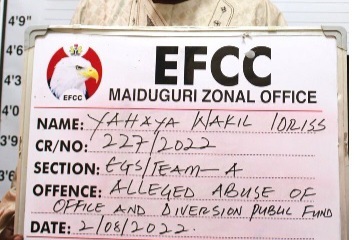 4'9"
4'6"
4'3"
3'9"
3'6
EFCC
EFCC
MAIDUGURI ZONAL OFFICE
NAME: YAHAYA WAKIL IDRISS
CR/NO: 227/2022
SECTION: EGS/TEAM-A
OFFENCE: ALLEGED ABUSE OF
OFFICE AND DIVERSION PUBLIC FUND
DATE: 2/08/2022.